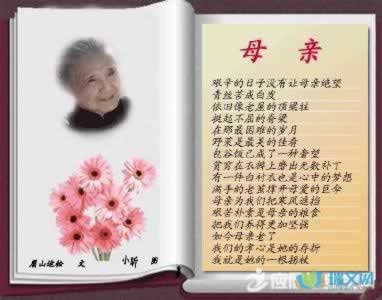 母亲
艰辛的日子没有让母亲绝望
青丝苦成白发
依旧像老屋的顶梁柱
挺起不屈的脊梁
在那最困难的岁月
野菜是最美的佳肴
包谷饭已成了一种奢望
背篼在衣裤上磨出无数补丁
有一件白衬衣也是心中的梦想
满手的老茧撑开母爱的巨伞
母亲为我们把寒风遮挡
艰苦朴素是母亲的粮食
把我们养得更加坚强
如今母亲老了
我们的孝心是她的存折
我就是她的一根拐杖
眉山运松 文 小昕 图
瑞文网